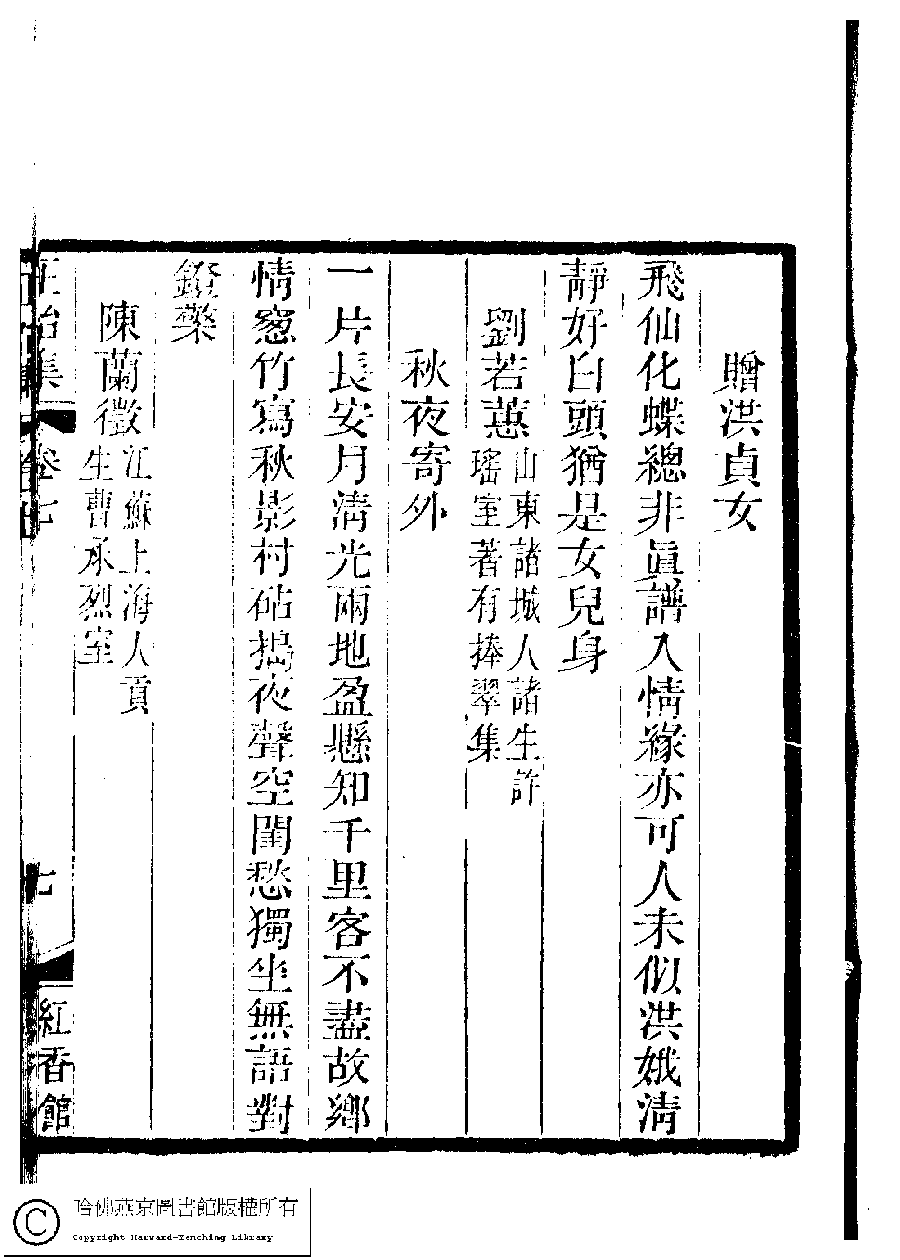 贈洪貞女
飛仙化蝶總非眞譜入情緣亦可人未似洪娥淸
靜好白頭猶是女兒身
劉若蕙
山東諸城人諸生許
瑤室著有捧翠集
秋夜寄外
一片長安月淸光兩地盈懸知千里客不盡故鄉
情窗竹寫秋影村砧搗夜聲空閨愁獨坐無語對
鐙檠
陳蘭徵
江蘇上海人貢
生曹承烈室
正始集
卷七
七
紅香館
哈佛燕京圖書館版權所有
Copyright Harvard-Yenching Library